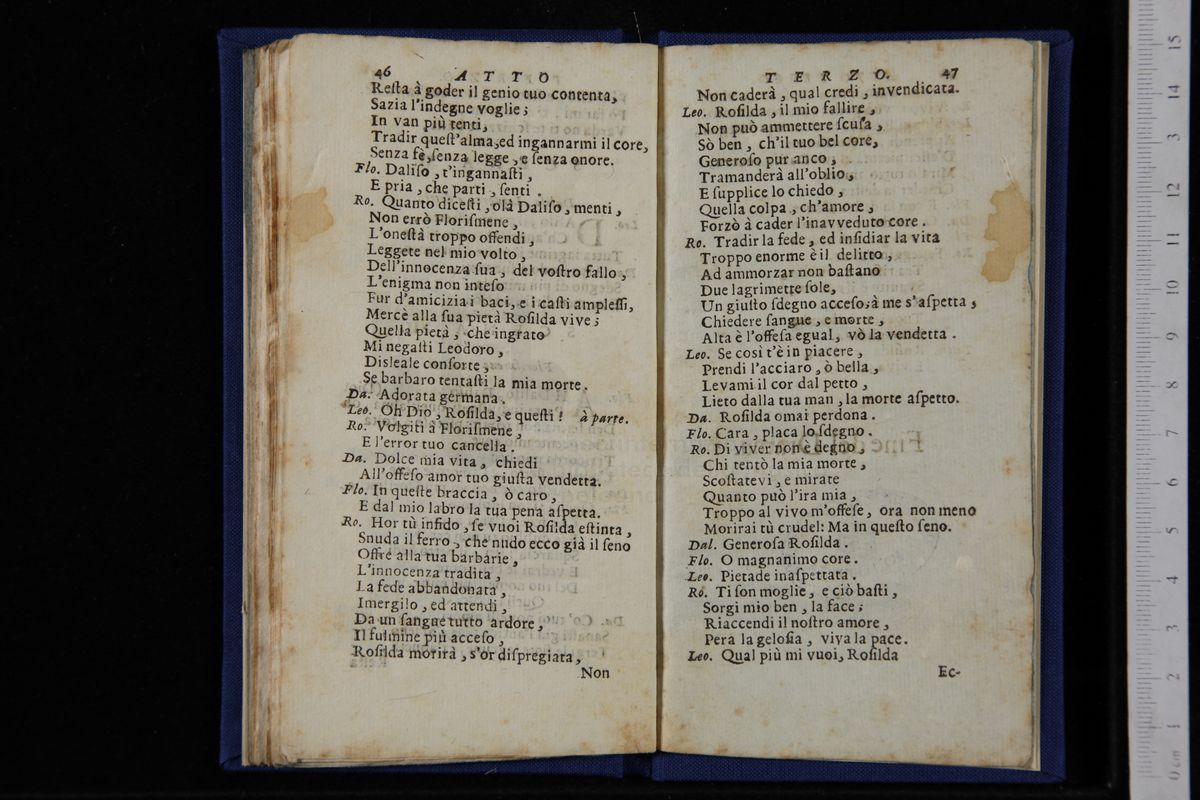 46 ATTO
Reſta à goder il genio tuo contenta,
Sazia l'indegne voglie;
In van più tenti,
Tradir queſt'alma, ed ingannarmi il core,
Senza fè, ſenza legge, e ſenza onore.
Flo. Daliſo, t'ingannaſti,
E pria, che parti, ſenti.
Ro. Quanto diceſti, olà Daliſo, menti,
Non errò Floriſmene,
L'oneſtà troppo offendi,
Leggete nel mio volto,
Dell'innocenza ſua, del voſtro fallo,
L'enigma non inteſo
Fur d'amicizia i baci, e i caſti ampleſſi,
Mercè alla ſua pietà Roſilda vive;
Quella pietà, che ingrato
Mi negaſti Leodoro,
Disleale conſorte,
Se barbaro tentaſti la mia morte.
Da. Adorata germana.
Leo. Oh Dio, Roſilda, e queſti! à parte.
Ro. Volgiti à Floriſmene,
E l'error tuo cancella.
Da. Dolce mia vita, chiedi
All'offeſo amor tuo giuſta vendetta.
Flo. In queſte braccia, ò caro,
E dal mio labro la tua pena aſpetta.
Ro. Hor tù infido, ſe vuoi Roſilda eſtinta,
Snuda il ferro, che nudo ecco già il ſeno
Offre alla tua barbarie,
L'innocenza tradita,
La fede abbandonata,
Imergilo, ed attendi,
Da un ſangue tutto ardore,
Il fulmine più acceſo,
Roſilda morirà, s'or diſpregiata,
Non
TERZO. 47
Non caderà, qual credi, invendicata.
Leo. Roſilda, il mio fallire,
Non può ammettere ſcuſa,
Sò ben, ch'il tuo bel core,
Generoſo pur anco,
Tramanderà all'oblio,
E ſupplice lo chiedo,
Quella colpa, ch'amore,
Forzò à cader l'inavveduto core.
Ro. Tradir la fede, ed inſidiar la vita
Troppo enorme è il delitto,
Ad ammorzar non baſtano
Due lagrimette ſole,
Un giuſto ſdegno acceſo; à me s'aſpetta,
Chiedere ſangue, e morte,
Alta è l'offeſa egual, vò la vendetta.
Leo. Se così t'è in piacere,
Prendi l'acciaro, ò bella,
Levami il cor dal petto,
Lieto dalla tua man, la morte aſpetto.
Da. Roſilda omai perdona.
Flo. Cara, placa lo ſdegno.
Ro. Di viver non è degno,
Chi tentò la mia morte,
Scoſtatevi, e mirate
Quanto può l'ira mia,
Troppo al vivo m'offeſe, ora non meno
Morirai tù crudel: Ma in queſto ſeno.
Dal. Generoſa Roſilda.
Flo. O magnanimo core.
Leo. Pietade inaſpettata.
Ro. Ti ſon moglie, e ciò baſti,
Sorgi mio ben, la face;
Riaccendi il noſtro amore,
Pera la geloſia, viva la pace.
Leo. Qual più mi vuoi, Roſilda
Ec-